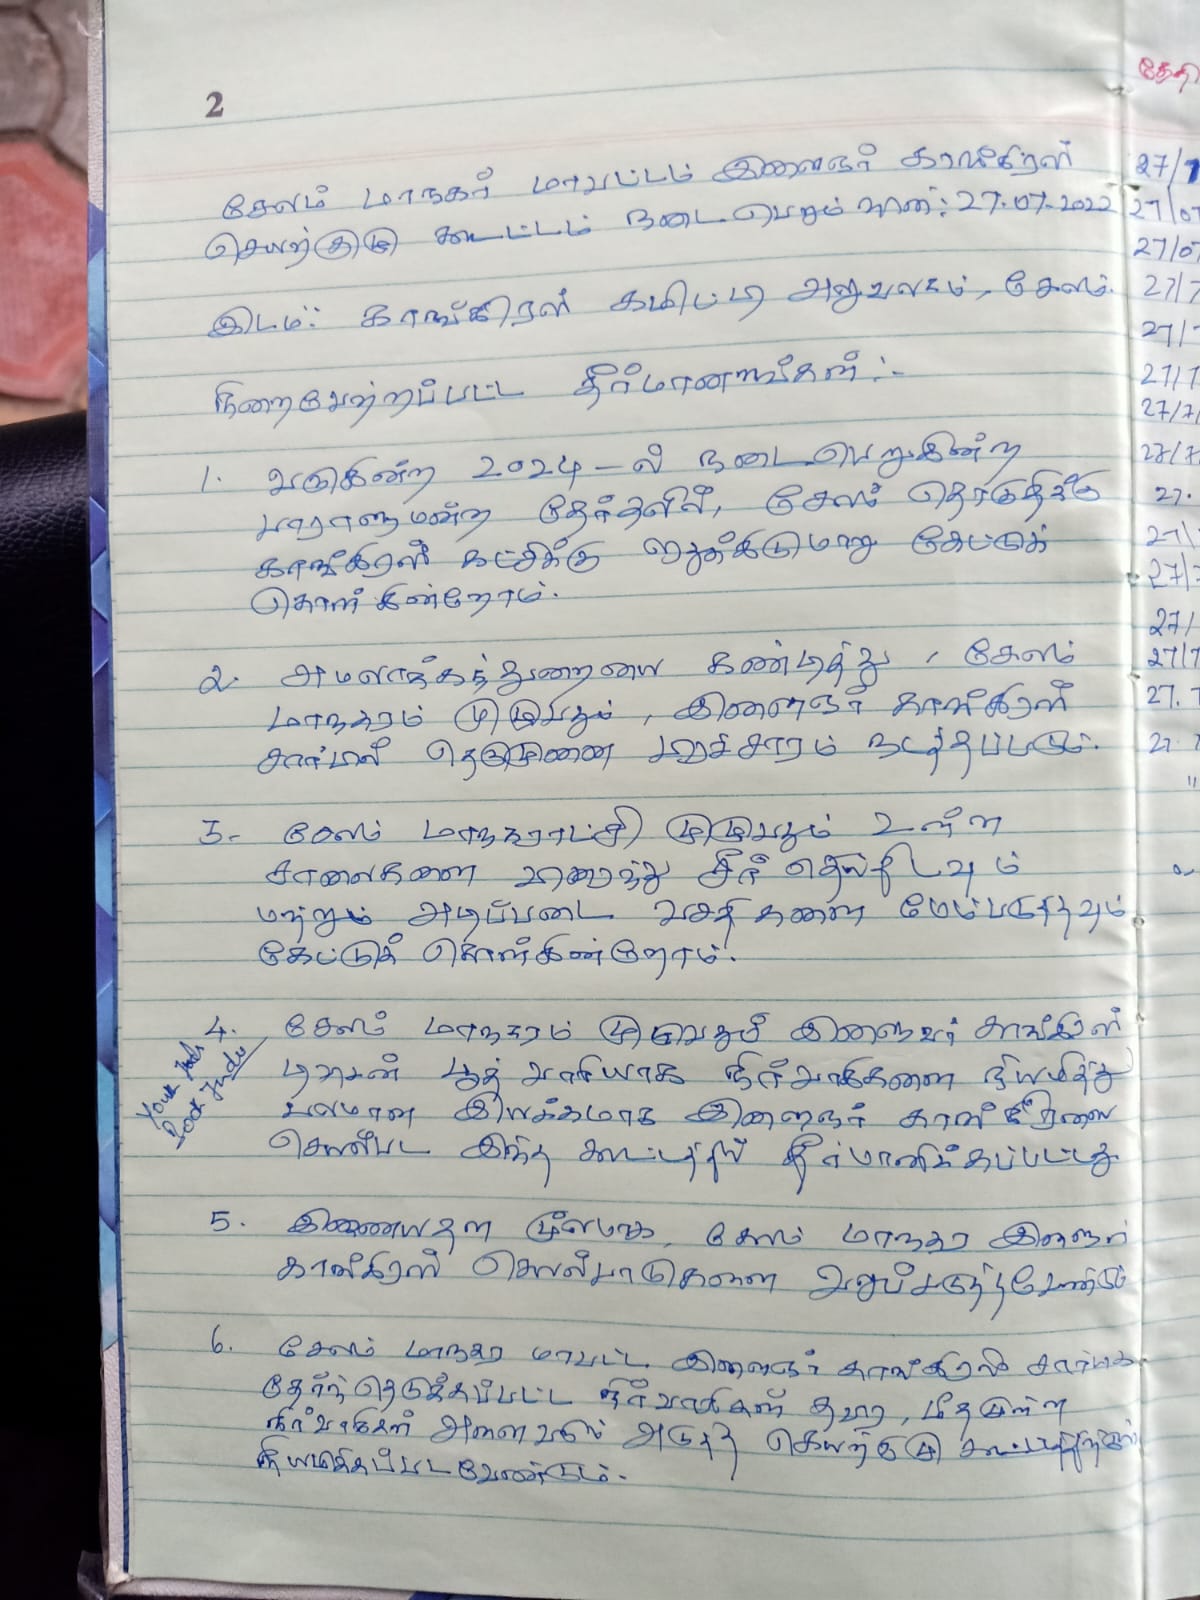 2
சேலம் மாநகர் மாவட்டம் இளைஞர் காங்கிரஸ்
செயற்குழு கூட்டம் நடைபெறும் நாள்: 27.07.2022
இடம்: காங்கிரஸ் கமிட்டி அலுவலகம், சேலம்.
நிறைவேற்றப்பட்ட தீர்மானங்கள் :-
1. வருகின்ற 2024 - ல் நடைபெறுகின்ற
பாராளுமன்ற தேர்தலில், சேலம் தொகுதிக்கு
காங்கிரஸ் கட்சிக்கு ஒதுக்கிடுமாறு கேட்டுக்
கொள்கின்றோம்.
2. அமலாக்கத்துறையை கண்டித்து, சேலம்
மாநகரம் முழுவதும், இளைஞர் காங்கிரஸ்
சார்பில் தெருமுனை பிரச்சாரம் நடத்தப்படும்.
3. சேலம் மாநகராட்சி முழுவதும் உள்ள
சாலைகளை விரைந்து சீர் செய்திடவும்
மற்றும் அடிப்படை வசதிகளை மேம்படுத்தவும்
கேட்டுக் கொள்கின்றோம்.
4. சேலம் மாநகரம் முழுவதும் இளைஞர் காங்கிரஸ்
பூத் வாரியாக நிர்வாகிகளை நியமித்து
பலமான இயக்கமாக இளைஞர் காங்கிரஸை
செயல்பட இந்த கூட்டத்தில் தீர்மானிக்கப்பட்டது
5. இணையதள மூலமாக, சேலம் மாநகர இளைஞர்
காங்கிரஸ் செயல்பாடுகளை வலுப்படுத்தவேண்டும்
6. சேலம் மாநகர மாவட்ட இளைஞர் காங்கிரஸ் சார்பாக
தேர்ந்தெடுக்கப்பட்ட நிர்வாகிகள் தவிர, மீதமுள்ள
நிர்வாகிகள் அனைவரும் அடுத்த செயற்குழு கூட்டத்திற்குள்
நியமிக்கப்படவேண்டும்.
தேதி
27/7
27/07
27/07
27/7
27/7
27/7
27/7
27/7
27.
27/
27/7
27/
27/7
27.7
27.7
"